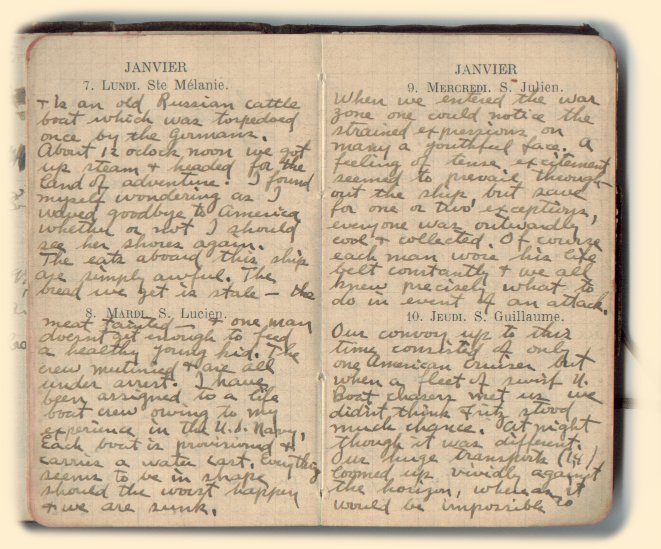 JANVIER
7. LUNDI. Ste Mélanie.
+ Is an old Russian cattle
boat which was torpedoed
once by the Germans.
About 12 oclock noon we got
up steam + headed for the
land of adventure. I found
myself wondering as I
waved goodbye to America
whether or not I should
see her shores again.
The eats aboard this ship
are simply awful. The
bread we get is stale - the
8. MARDI. S. Lucien.
meat tainted - + one man
doesnt get enough to feed
a healthy young kid. The
crew mutinied + are all
under arrest. I have
been assigned to a life
boat crew owing to my
experience in the U.S. Navy.
Each boat is provisioned +
carries a water cast. Everything
seems to be in shape
should the worst happen
+ we are sunk.
JANVIER
9. MERCREDI. S. Julien.
When we entered the war
zone one could notice the
strained expressions on
many a youthful face. A
feeling of tense excitement
seemed to prevail through-
out the ship but save
for one or two exceptions,
everyone was outwardly
cool + collected. Of course
each man wore his life
belt constantly + we all
knew precisely what to
do in event of an attack.
10. JEUDI. S. Guillaume.
Our convoy up to this
time consisted of only
one American cruiser but
when a fleet of swift U.
Boat chasers met us we
didn't think Fritz stood
much chance. At night
though it was different.
Our huge transports (14)
loomed up vividly against
the horizon, whereas it
would be impossible